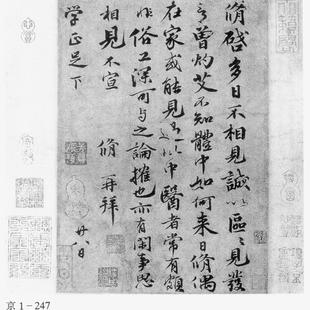 脩啓多日不相見誠以區區見發
言曾灼艾不知體中如何來日脩偶
在家或能見過此中醫者常有頗
非俗工深可與之論搉也亦有閑事思
相見不宣 脩再拜 廿八日
學正足下
京1－247